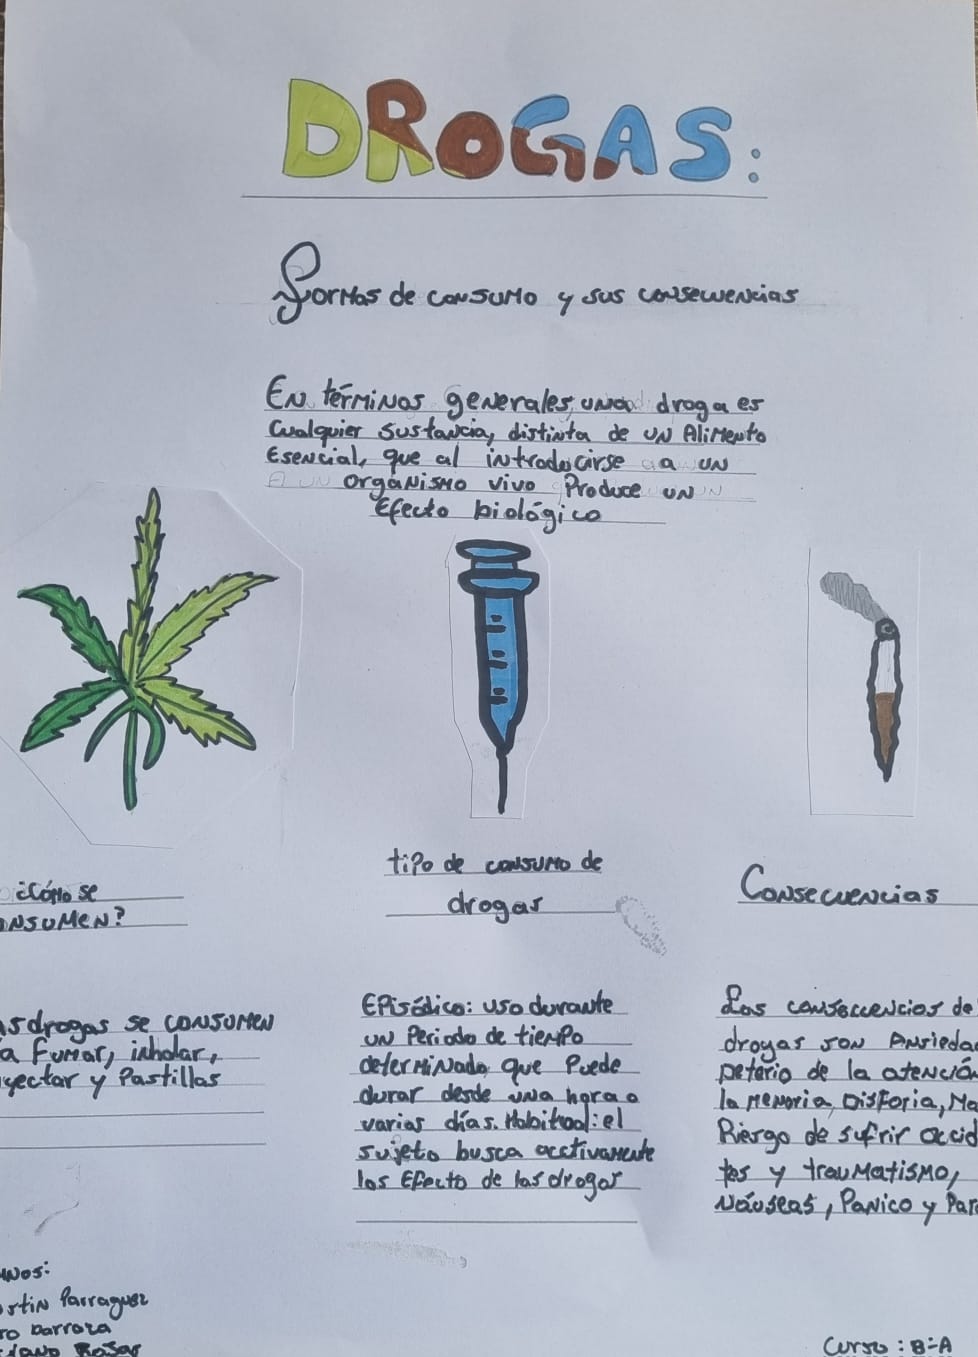 DROGAS:
formas de consumo y sus consecuencias
En términos generales, una droga es
cualquier sustancia, distinta de un Alimento
Esencial, que al introducirse a un
organismo vivo Produce un
Efecto biológico
¿Cómo se
onsumen?
as drogas se consumen
a fumar, inhalar,
yectar y Pastillas
tipo de consumo de
drogas
Episódico: uso durante
un Periodo de tiempo
determinado que Puede
durar desde una hora a
varios días. Habitual: el
sujeto busca acctivamente
los Efecto de las drogas
Consecuencias
Las consecuencias de
drogas son Ansieda
peterio de la atención
la memoria, Disforia, Ma
Riesgo de sufrir accid
tes y traumatismo,
Náuseas, Panico y Par
unos:
rtin Parraguez
ro Barroza
Rosas
Curso: 8-A